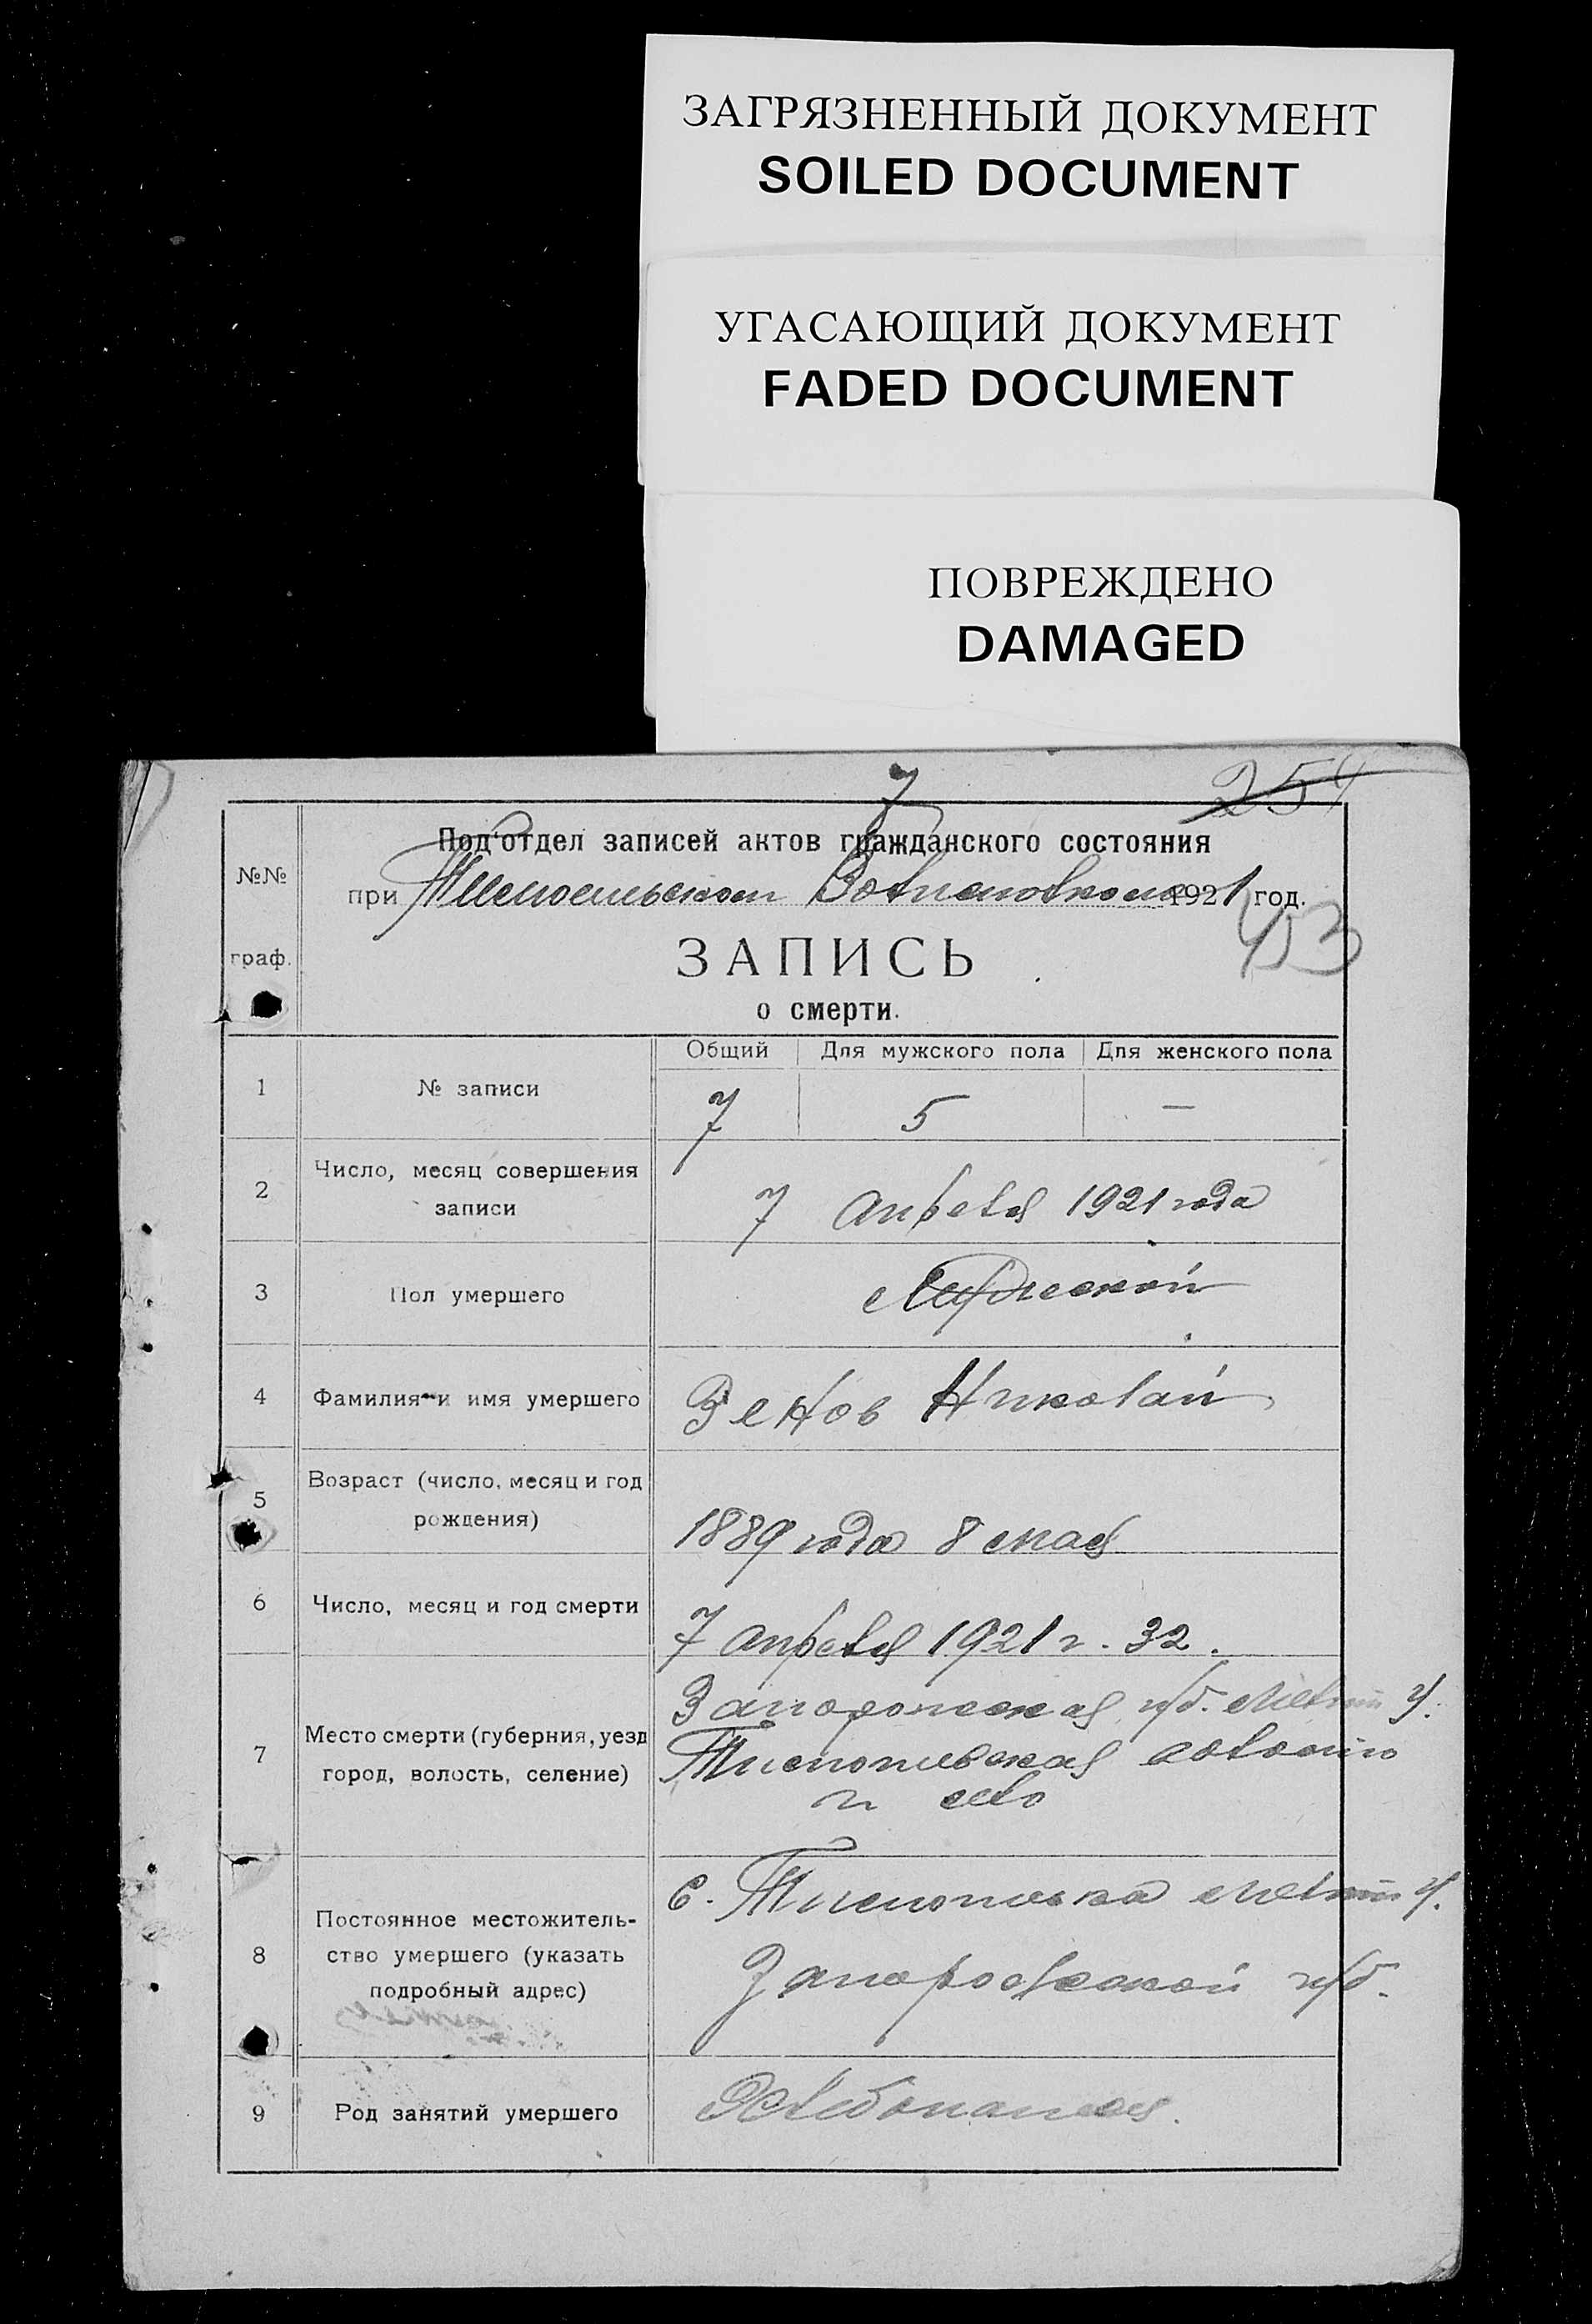 ЗАГРЯЗНЕННЫЙ ДОКУМЕНТ
SOILED DOCUMENT
УГАСАЮЩИЙ ДОКУМЕНТ
FADED DOCUMENT
ПОВРЕЖДЕНО
DAMAGED
7
254
Под'отдел записей актов гражданского состояния
№№ граф.
при 1921 год.
453
ЗАПИСЬ
о смерти.
Общий Для мужского пола Для женского пола
1 № записи 7 5 —
2 Число, месяц совершения
записи 7 апреля 1921 года
3 Пол умершего Мужской
4 Фамилия и имя умершего Зеков Николай
5 Возраст (число, месяц и год
рождения) 1889 года 8 мая
6 Число, месяц и год смерти 7 апреля 1921 г. 32.
7 Место смерти (губерния, уезд
город, волость, селение)
Запорожская губ. Мелит у.
волости
и село
8 Постоянное местожитель-
ство умершего (указать
подробный адрес)
с. Мелит у.
Запорожской губ.
9 Род занятий умершего Хлебопашец.